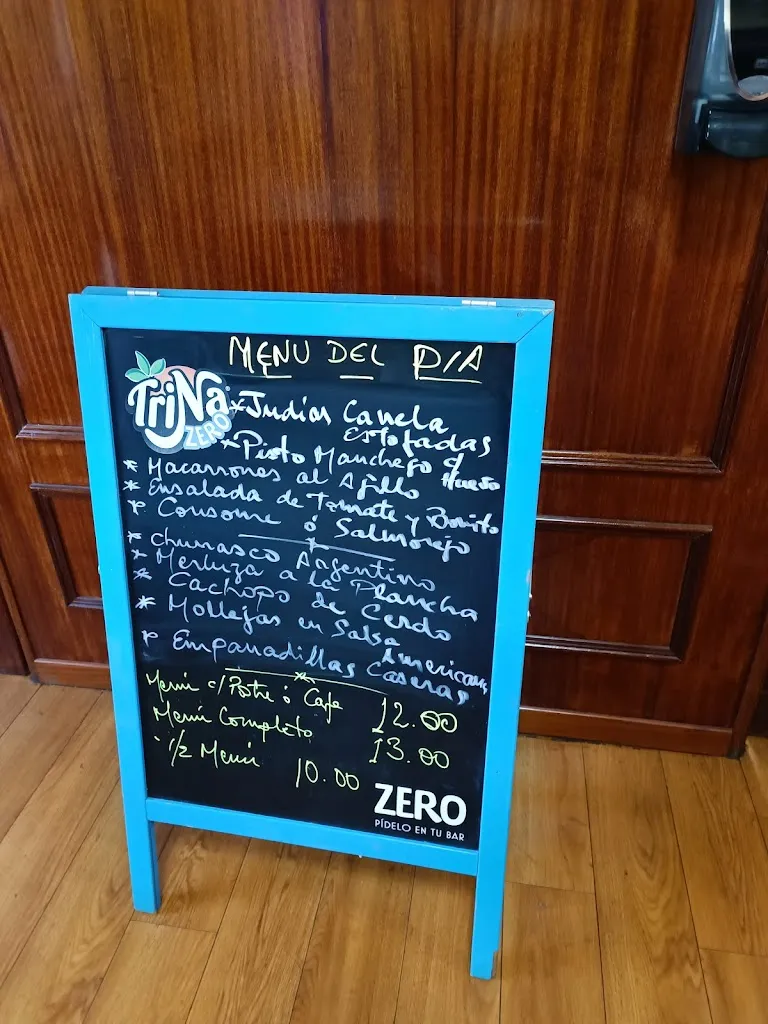 MENU DEL DIA
TriNa
ZERO
* Judias Canela
Estofadas
* Pisto Manchego c/
Huevo
* Macarrones al Ajillo
* Ensalada de Tomate y Bonito
* Consome ó Salmorejo
* Churrasco Argentino
* Merluza a la Plancha
* Cachopo de Cerdo
* Mollejas en Salsa
Americana
* Empanadillas Caseras
Menú c/Postre ó Cafe 12.00
Menú Completo 13.00
1/2 Menú 10.00
ZERO
PÍDELO EN TU BAR